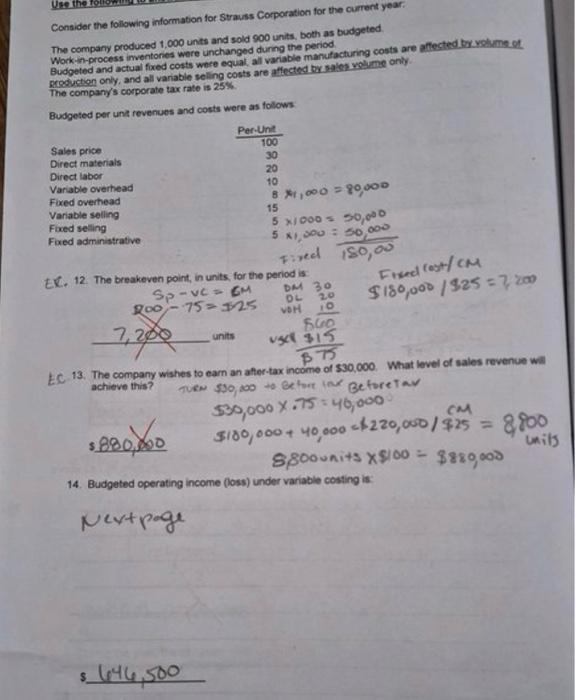 Use the following
Consider the following information for Strauss Corporation for the current year:
The company produced 1,000 units and sold 900 units, both as budgeted.
Work-in-process inventories were unchanged during the period.
Budgeted and actual fixed costs were equal, all variable manufacturing costs are affected by volume of
production only, and all variable selling costs are affected by sales volume only.
The company's corporate tax rate is 25%.
Budgeted per unit revenues and costs were as follows:
Per-Unit
Sales price 100
Direct materials 30
Direct labor 20
Variable overhead 10
Fixed overhead 8 x1,000 = 80,000
Variable selling 15
Fixed selling 5 x1000 = 50,000
Fixed administrative 5 x1,000 = 50,000
Fixed 180,00
EC. 12. The breakeven point, in units, for the period is:
Sp - VC = CM DM 30 Fixed cost/CM
100 - 75 = $25 DL 20 $180,000 / $25 = 7,200
VOH 10
7,200 units $60
vsell $15
$75
EC 13. The company wishes to earn an after-tax income of $30,000. What level of sales revenue will
achieve this? TURN $30,000 to Before Tax
$30,000 X .75 = 40,000
$180,000 + 40,000 = $220,000 / $25 CM = 8,800 units
$ 880,000
8,800 units X $100 = $880,000
14. Budgeted operating income (loss) under variable costing is:
Next page
$ 646,500